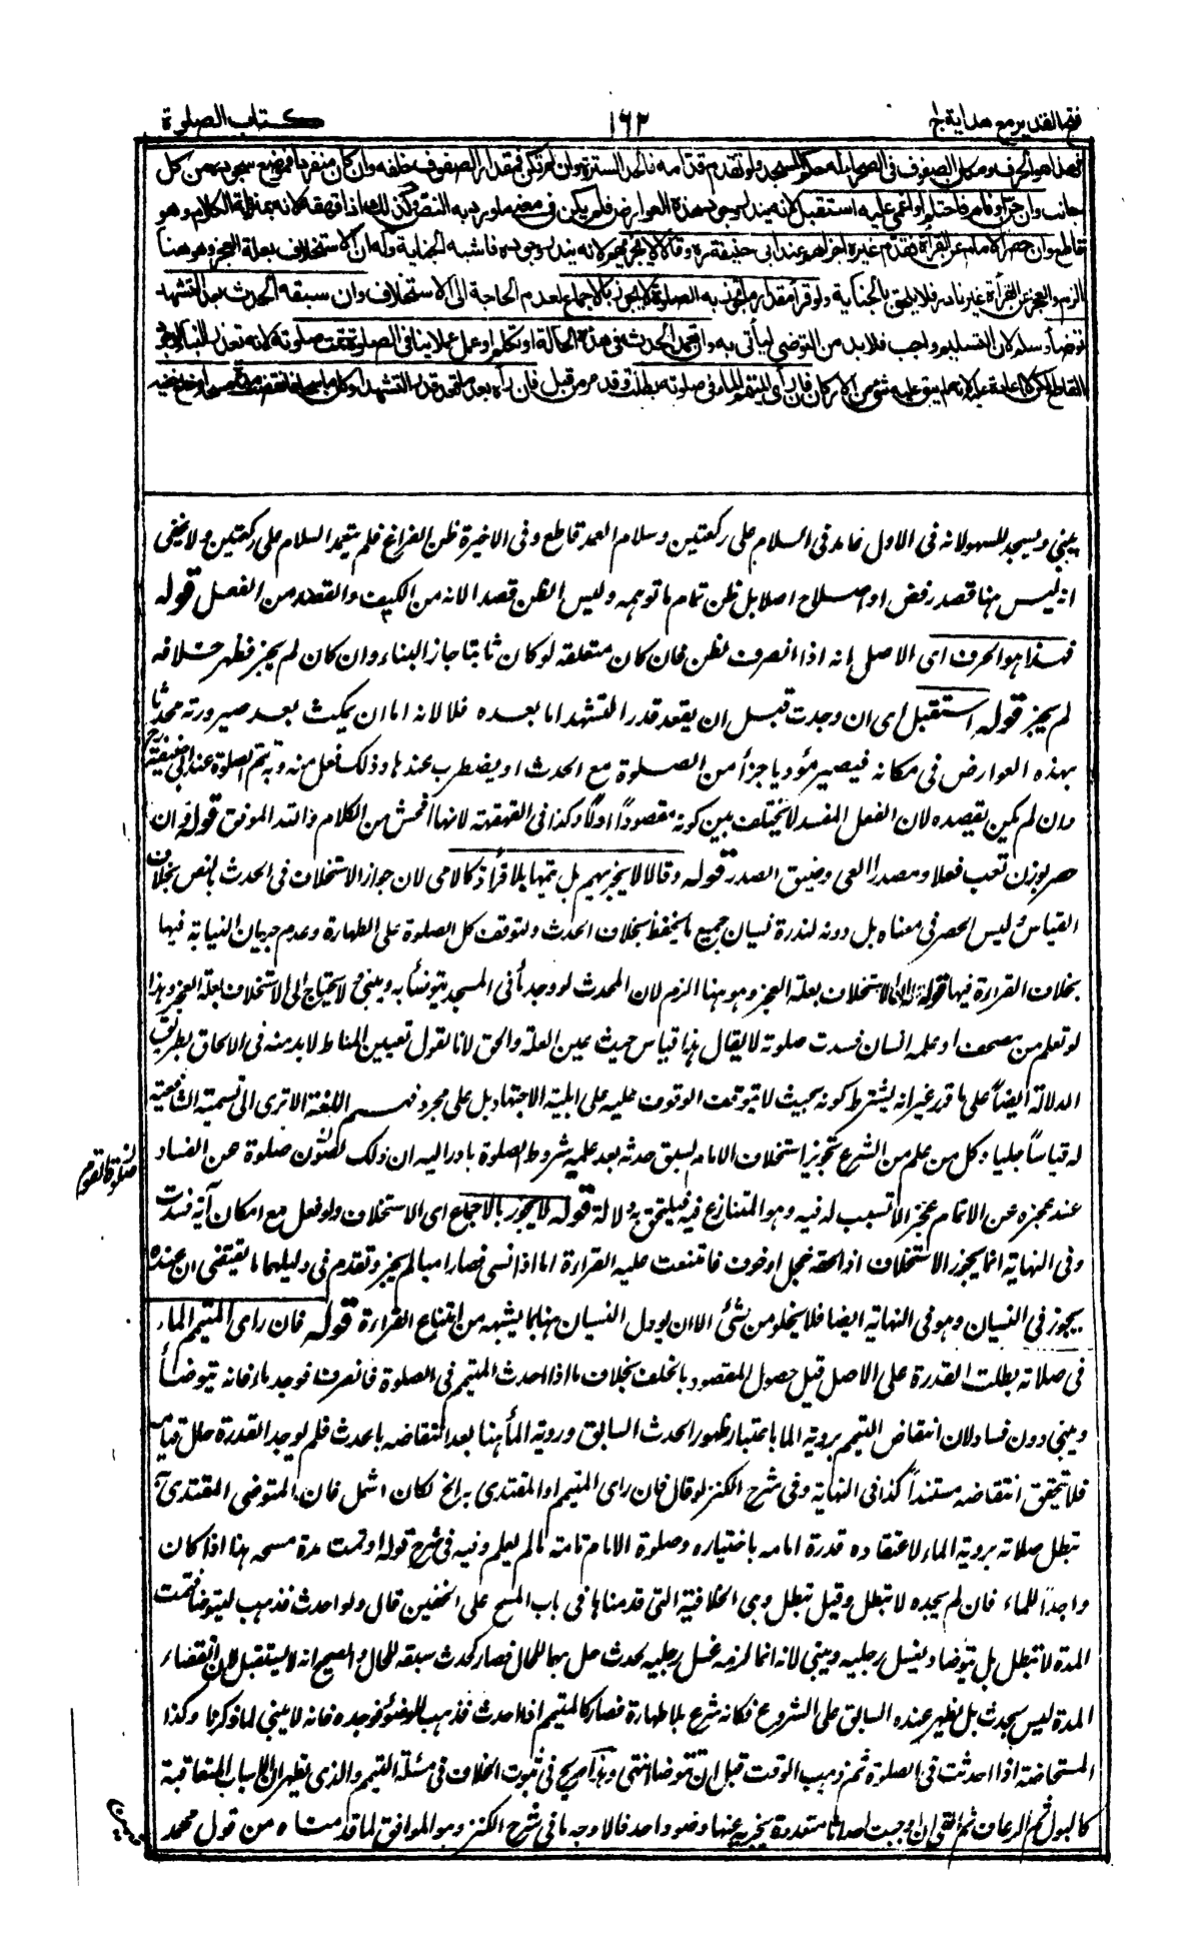 فتح القدير مع هداية ج ١
١٦٢
كتاب الصلوة
فهذا هو الحرف ومكان الصفوف في الصحراء له حكم المسجد ولو تقدم قدامه فالحد السترة وان لم تكن فمقدار الصفوف خلفه وان كان منفردا فموضع سجوده من كل
جانب وان جن او نام فاحتلم او اغمي عليه استقبل لانه يندر وجود هذه العوارض فلم يكن في معنى ما ورد به النص وكذلك اذا قهقه لانه بمنزلة الكلام وهو
قاطع وان حصر الامام عن القراءة فقدم غيره اجزاهم عند ابي حنيفة ره وقالا لا يجزيهم لانه يندر وجوده فاشبه الجنابة وله ان الاستخلاف بعلة العجز وهو هنا
الزم والعجز عن القرأة غير نادر فلا يلحق بالجنابة ولو قرأ مقدار ما تجوز به الصلوة لا يجوز بالاجماع لعدم الحاجة الى الاستخلاف وان سبقه الحدث بعد التشهد
توضأ وسلم لان التسليم واجب فلا بد من التوضي ليأتي به وان تعمد الحدث في هذه الحالة او تكلم او عمل عملا ينافي الصلوة تمت صلوته لانه تعذر البناء لوجود
القاطع لكن لا اعادة عليه لانه لم يبق عليه شئ من الاركان فان رأى المتيمم الماء في صلوته بطلت وقد مر من قبل فان رآه بعد ما قعد قدر التشهد او كان ماسحا فانقضت مدة مسحه او خلع خفيه
يبني ويسجد للسهو لانه في الاول عامد في السلام على ركعتين وسلام العمد قاطع وفي الاخيرة ظن الفراغ فلم يتعمد السلام على ركعتين ولا يخفى
انه ليس ههنا قصد رفض او اصلاح اصلا بل ظن تمام ما توهمه وليس الظن قصدا لانه من الكيف والقصد من الفعل قوله
فهذا هو الحرف اى الاصل انه اذا انصرف لظن فان كان متعلقه لو كان ثابتا جاز البناء وان كان لم يجز فظهر خلافه
لم يجز قوله استقبل اى ان وجدت قبل ان يقعد قدر التشهد اما بعده فلا لانه اما ان يمكث بعد صيرورته محدثا
بهذه العوارض في مكانه فيصير مؤديا جزأ من الصلوة مع الحدث او يضطرب عندها وذلك فعل منه وبه تتم الصلوة عند ابي حنيفة
وان لم يكن يقصده لان الفعل المفسد لا يختلف بين كونه مقصودا اولا وكذا في القهقهة لانها افحش من الكلام والله الموفق قوله وان
حصر بوزن تعب فعلا ومصدرا العي وضيق الصدر قوله وقالا لا يجزيهم بل يتمها بلا قرأة كالامي لان جواز الاستخلاف في الحدث بالنص بخلاف
القياس وليس الحصر في معناه بل دونه لندرة نسيان جميع ما يحفظ بخلاف الحدث ولتوقف كل الصلوة على الطهارة وعدم جريان النيابة فيها
بخلاف القراءة فيها قوله ان الاستخلاف بعلة العجز وهو ههنا الزم لان المحدث لو وجد ماء في المسجد يتوضأ به ويبني ولا يحتاج الى الاستخلاف بعلة العجز وهذا
لو تعلم من مصحف او علمه انسان فسدت صلوته لا يقال هذا قياس حيث عين العلة والحق لانا نقول تعيين المناط لا بد منه في الالحاق بطريق
الدلالة ايضا على ما قدر غير انه يشترط كونه بحيث لا يتوقف الوقوف عليه على اهلية الاجتهاد بل على مجرد فهم اللغة الا ترى الى تسمية الشافعية
له قياسا جليا وكل من علم من الشرع تجويز استخلاف الامام لسبق حدثه بعد علمه شروط الصلوة بادر اليه ان ذلك لصون صلوة عن الفساد
لصلوة القوم
عند عجزه عن الاتمام عجزا لا تسبب له فيه وهو المتنازع فيه فيلحق به دلالة قوله لا يجوز بالاجماع اى الاستخلاف ولو فعل مع امكان آية فسدت
وفي النهاية انما يجوز الاستخلاف اذا لحقه خجل او خوف فامتنعت عليه القراءة اما اذا نسى فصار اميا لم يجز وتقدم في دليلهما ما يقتضى ان عنده
يجوز في النسيان وهو في النهاية ايضا فلا يخلو من شئ الا ان يؤول النسيان منهما بما يشبهه من امتناع القراءة قوله فان راى المتيمم الماء
في صلاته بطلت القدرة على الاصل قبل حصول المقصود بالخلف بخلاف ما اذا احدث المتيمم في الصلوة فانصرف فوجد ماء فانه يتوضأ
ويبني دون فساد لان انتقاض التيمم برؤية الماء باعتبار ظهور الحدث السابق ورؤية الماء هنا بعد انتقاضه بالحدث فلم يوجد القدرة حال قيامه
فلا يتحقق انتقاضه مستندا كذا في النهاية وفي شرح الكنز لو قال فان راى المتيمم او المقتدى به الخ لكان اشمل فان المتوضى المقتدى به
تبطل صلاته برؤية الماء لاعتقاده قدرة امامه باختياره وصلوة الامام تامة ما لم يعلم وفيه في شرح قوله او تمت مدة مسحه هذا اذا كان
واجدا للماء فان لم يجده لا تبطل وقيل تبطل وهي الخلافية التي قدمناها في باب المسح على الخفين قال ولو احدث فذهب ليتوضأ فتمت
المدة لا تبطل بل يتوضأ ويغسل رجليه ويبني لانه انما لزمه غسل رجليه لحدث حل بهما للحال فصار كحدث سبقه للحال والصحيح انه يستقبل لان انقضاء
المدة ليس بحدث بل يظهر عنده السابق على الشروع فكانه شرع بلا طهارة فصار كالمتيمم اذا احدث فذهب للوضوء فوجده فانه لا يبني لما ذكرنا وكذا
المستحاضة اذا احدثت في الصلوة ثم ذهب الوقت قبل ان تتوضأ انتهى وهذا صريح في ثبوت الخلاف في مسئلة التيمم والذى يظهر ان الاسباب المتعاقبة
كالبول ثم الرعاف ثم القئ ان اوجبت احداثا متعددة يجزيه عنها وضوء واحد فالاوجه ما في شرح الكنز وهو الموافق لما قدمناه من قول محمد